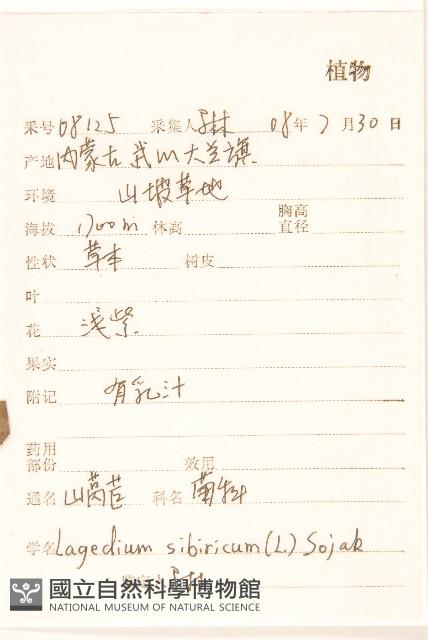 植物
采号 08125 采集人 08年 7月30日
产地 内蒙古
环境 山坡草地
海拔 1700m 体高 胸高直径
性状 草本 树皮
叶
花 浅紫
果实
附记 有乳汁
药用部份 效用
通名 山莴苣 科名 菊科
学名 Lagedium sibiricum (L.) Sojak
國立自然科學博物館
NATIONAL MUSEUM OF NATURAL SCIENCE